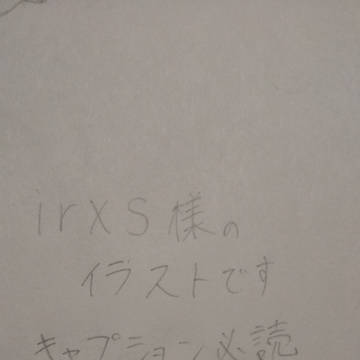 irxs様の
イラストです
キャプション必読